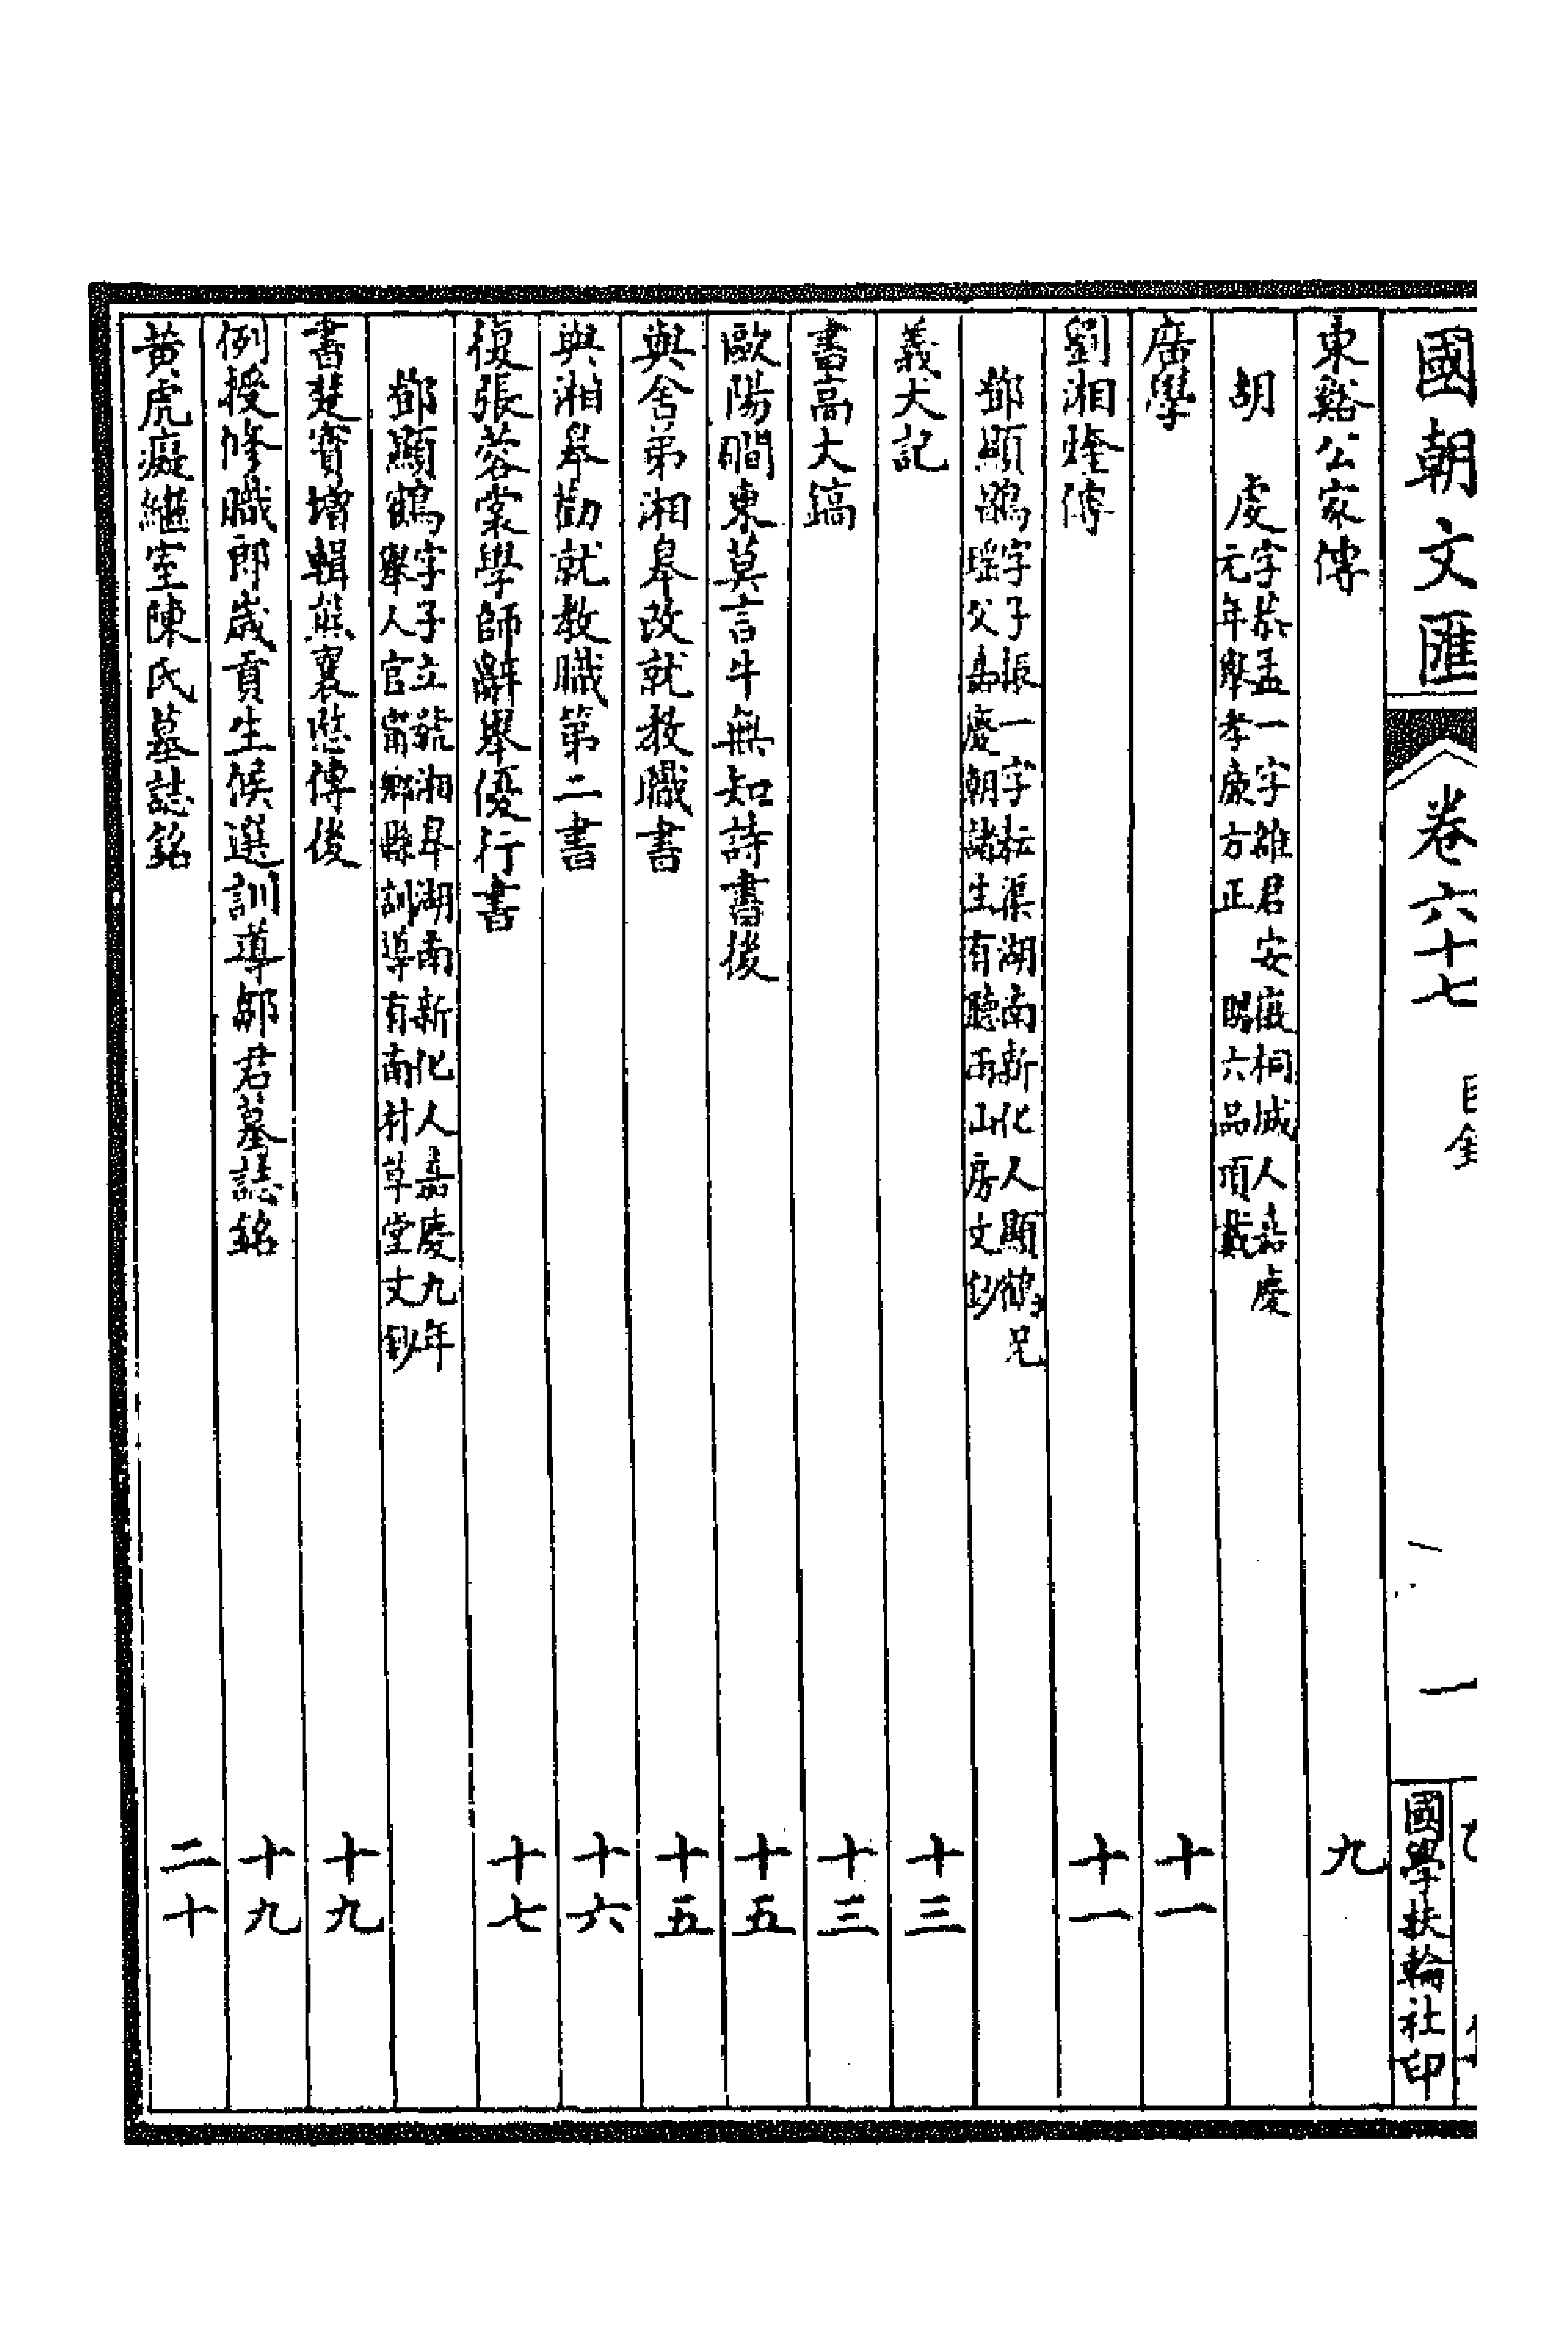 國朝文匯 卷六十七 目錄 一 國學扶輪社印
東谿公家傳 九
胡 虔字恭孟一字雒君安徽桐城人嘉慶
元年舉孝廉方正 賜六品頂戴
廣學 十一
劉湘煃傳 十一
鄧顯鵑字子振一字耘渠湖南新化人顯鶴兄
瑶父嘉慶朝諸生有聽雨山房文鈔
義犬記 十三
書高大鎬 十三
歐陽磵東莫言牛無知詩書後 十五
與舍弟湘皋改就教職書 十五
與湘皋勸就教職第二書 十六
復張蓉裳學師辭舉優行書 十七
鄧顯鶴字子立號湘皋湖南新化人嘉慶九年
舉人官甯鄉縣訓導有南村草堂文鈔
書楚寶增輯熊襄愍傳後 十九
例授修職郎歲貢生候選訓導鄒君墓誌銘 十九
黃虎癡繼室陳氏墓誌銘 二十